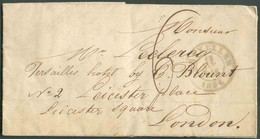 Monsieur
Mr. Leclercq
Versailles hotel by C. Blount
No 2 Leicester place
Leicester Square
London.